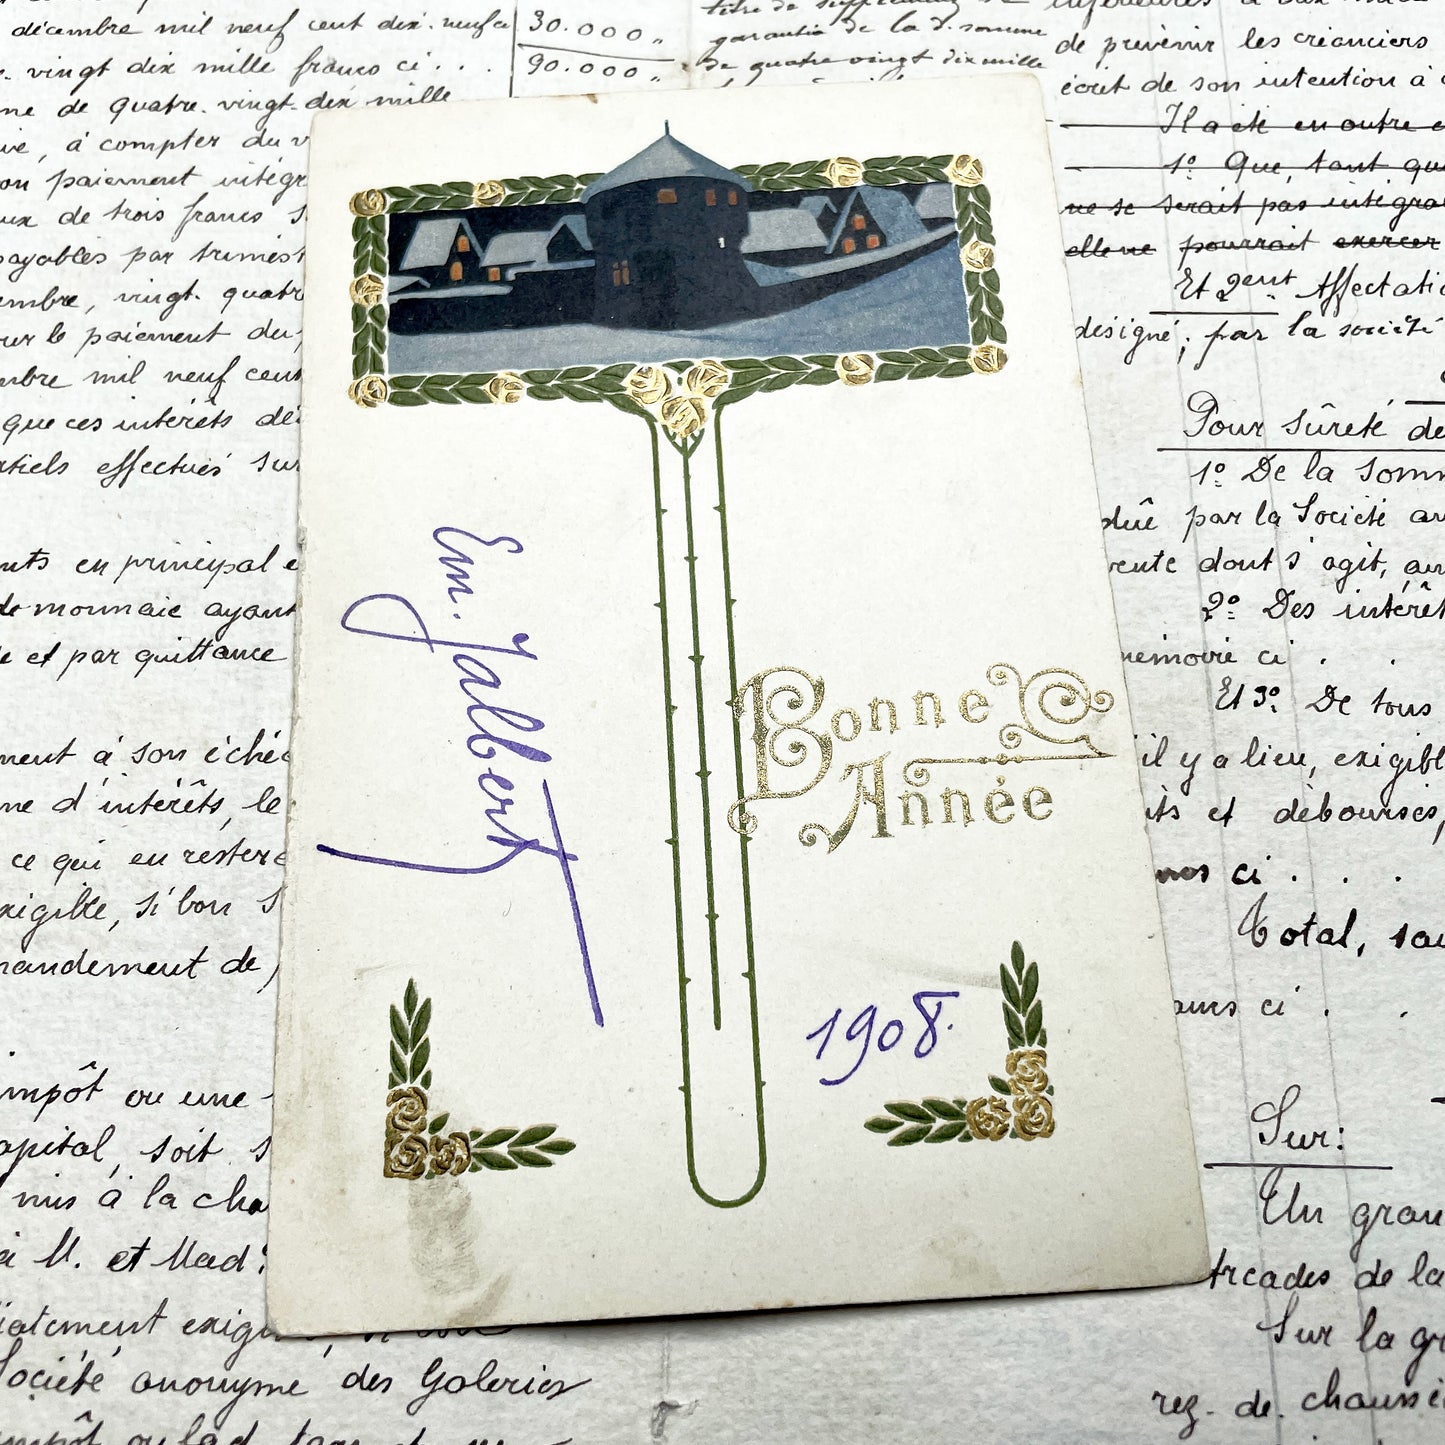 décembre mil neuf cent dix. neuf
30.000 "
vingt dix mille francs ci . . .
90.000 "
de quatre. vingt. dix mille
à compter du
paiement intégr
de trois francs
par trimest
vingt. quatre
le paiement du
mil neuf cent
que ces intérêts
effectués sur
en principal
de monnaie ayant
et par quittance
à son éché
d'intérêts, le
ce qui en rester
si bon
de
impôt ou une
soit
mis à la cha
M. et Mad
exig
Société anonyme des Galeries
garantie de la d. somme
de quatre vingt dix mille
de prévenir les créanciers
écrit de son intention à
Il a été en outre
1° Que, tant que
ne se serait pas intégra
elle ne pourrait exercer
Et 2ent Affectati
désigné; par la société
Pour sûreté de
1° De la somm
dûe par la Société
dont s'agit,
2° Des intérêt
ci . .
Et 3° De tous
il y a lieu, exigibl
et débourses,
ci . . .
Total, sau
ci . .
Sur:
Un gran
de la
Sur la gr
rez. de. chauss
Em. Jalbert
Bonne
Année
1908.